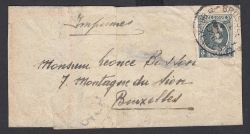 Imprimés
Monsieur Léonce Bosson
7. Montagne du Sion
Bruxelles